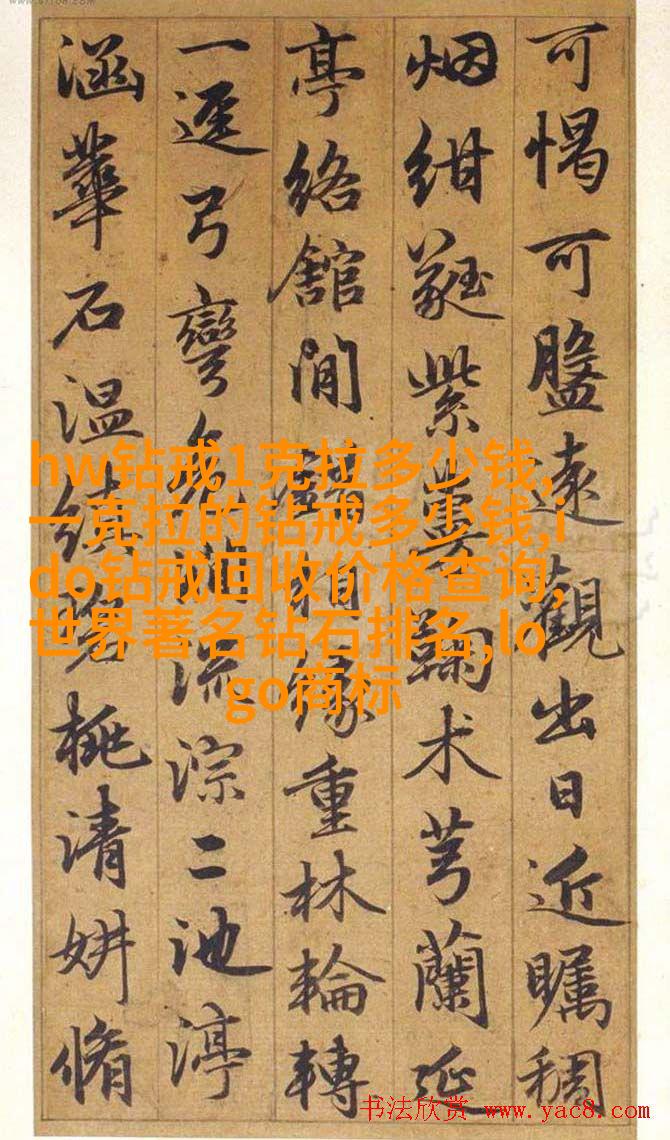 可愒可盤遠觀出日近矚稠
烟紺蕤紫鞠术芎蘭延
亭絡館間相緣重林輪轉
一逕弓彎流淙二池渟
涵華石温縝碧桃清妍脩
hw钻戒1克拉多少钱,
一克拉的钻戒多少钱,i
do钻戒回收价格查询,
世界著名钻石排名,lo
go商标
书法欣赏 www.yac8.com